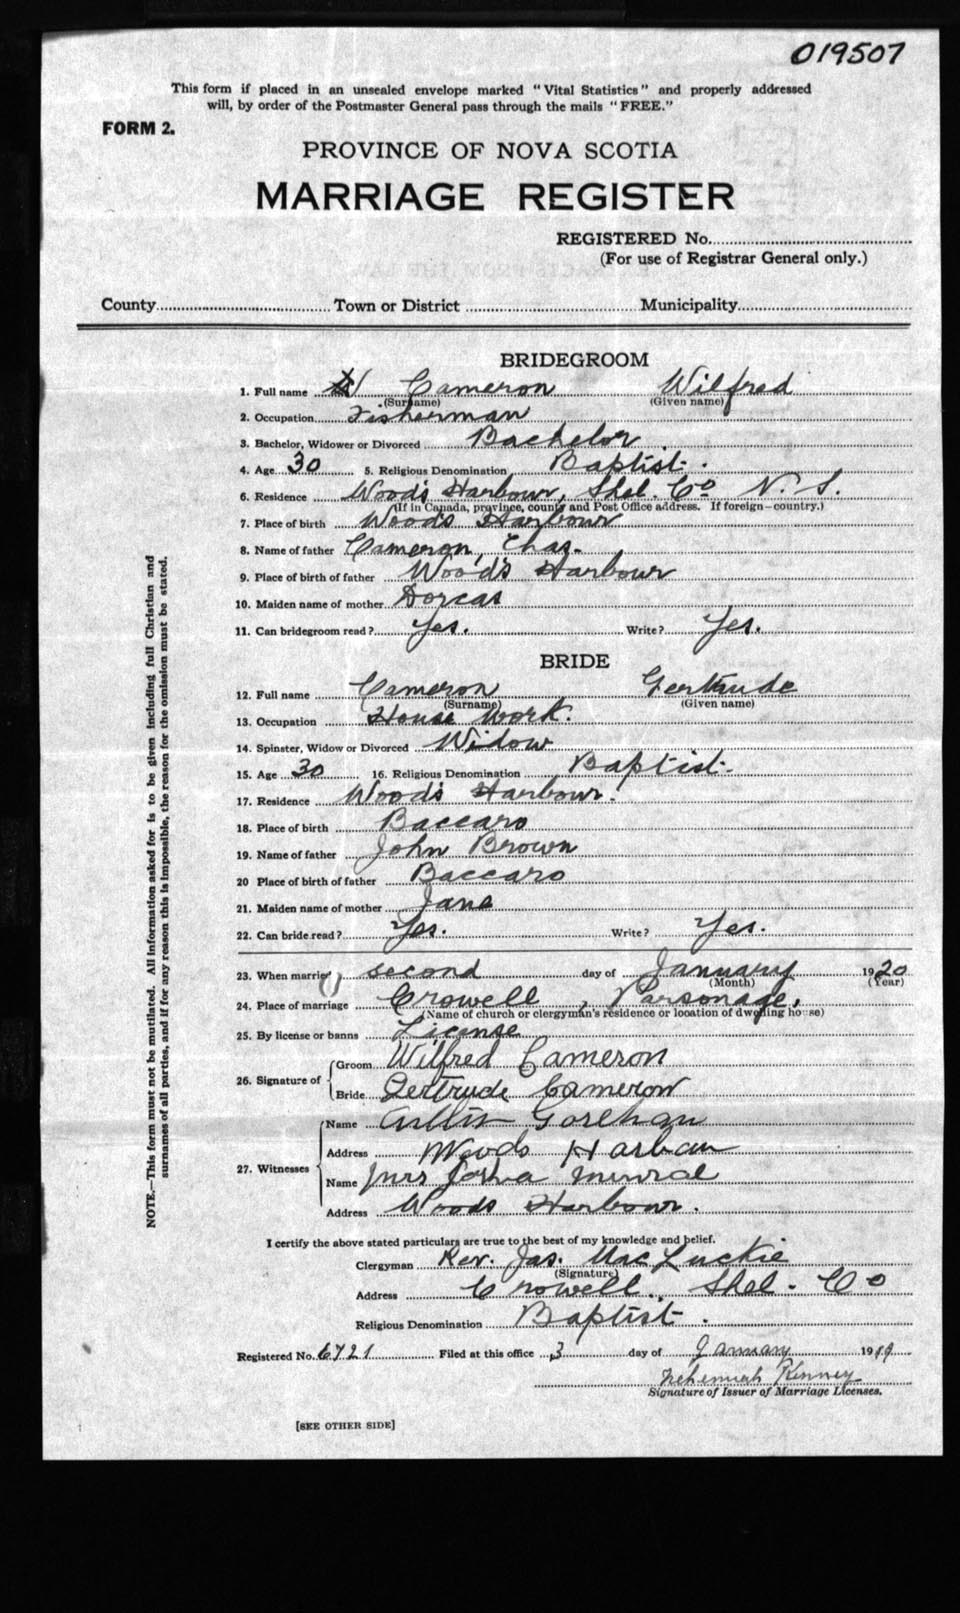 019507
This form if placed in an unsealed envelope marked "Vital Statistics" and properly addressed
will, by order of the Postmaster General pass through the mails "FREE."
FORM 2.
PROVINCE OF NOVA SCOTIA
MARRIAGE REGISTER
REGISTERED No.
(For use of Registrar General only.)
County Town or District Municipality
BRIDEGROOM
1. Full name Cameron Wilfred
(Surname) (Given name)
2. Occupation Fisherman
3. Bachelor, Widower or Divorced Bachelor
4. Age 30 5. Religious Denomination Baptist.
6. Residence Wood's Harbour, Shel. Co N. S.
(If in Canada, province, county and Post Office address. If foreign—country.)
7. Place of birth Wood's Harbour
8. Name of father Cameron, Chas.
9. Place of birth of father Wood's Harbour
10. Maiden name of mother Dorcas
11. Can bridegroom read? Yes. Write? Yes.
BRIDE
12. Full name Cameron Gertrude
(Surname) (Given name)
13. Occupation House Work.
14. Spinster, Widow or Divorced Widow
15. Age 30 16. Religious Denomination Baptist.
17. Residence Wood's Harbour.
18. Place of birth Baccaro
19. Name of father John Brown
20 Place of birth of father Baccaro
21. Maiden name of mother Jane
22. Can bride read? Yes. Write? Yes.
23. When married second day of January 1920
(Month) (Year)
24. Place of marriage Crowell, Parsonage.
(Name of church or clergyman's residence or location of dwelling house)
25. By license or banns License
26. Signature of Groom Wilfred Cameron
Bride Gertrude Cameron
27. Witnesses Name Gorehan
Address Woods Harbour
Name Mrs
Address Woods Harbour.
I certify the above stated particulars are true to the best of my knowledge and belief.
Clergyman Rev. Jas. MacLuckie
(Signature)
Address Crowell, Shel. Co
Religious Denomination Baptist.
Registered No. 6721 Filed at this office 3 day of January 1919
Nehemiah Kenney
Signature of Issuer of Marriage Licenses.
[SEE OTHER SIDE]
NOTE.—This form must not be mutilated. All information asked for is to be given including full Christian and
surnames of all parties, and if for any reason this is impossible, the reason for the omission must be stated.